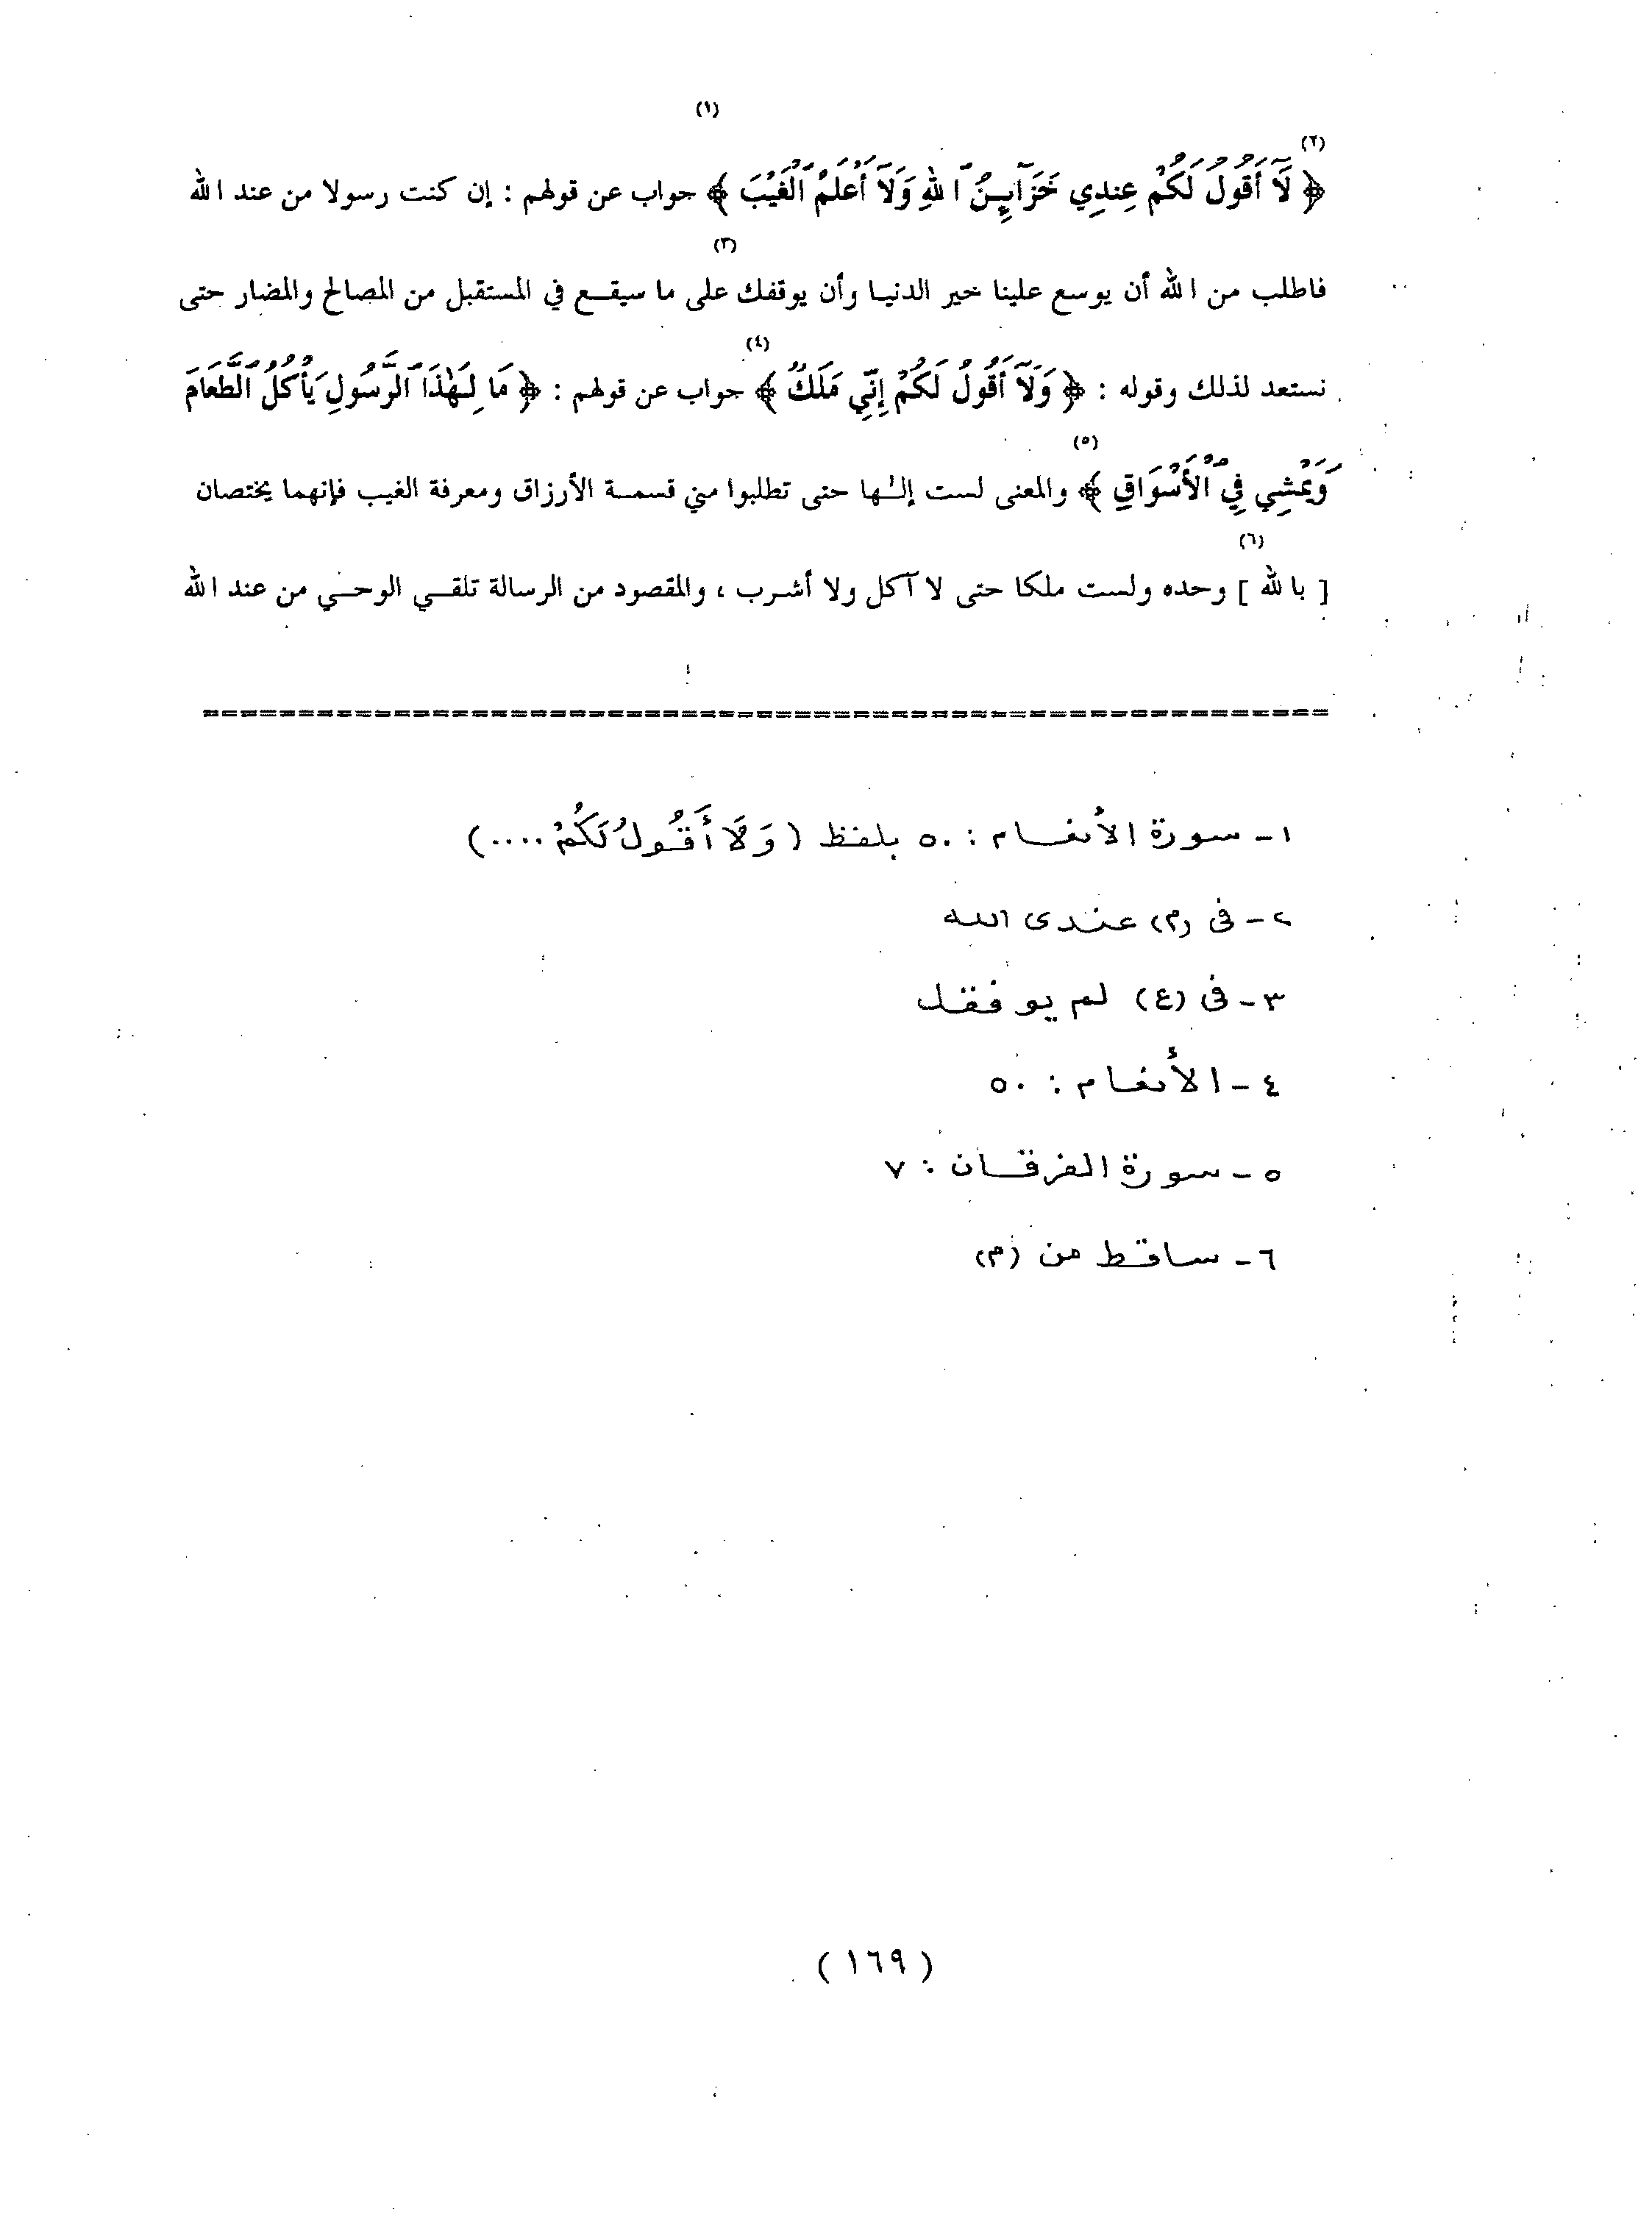 (١)
(٢)
﴿ لَآ أَقُولُ لَكُمْ عِندِي خَزَآىِٕنُ ٱللَّهِ وَلَآ أَعْلَمُ ٱلْغَيْبَ ﴾ جواب عن قولهم : إن كنت رسولا من عند الله
(٣)
فاطلب من الله أن يوسع علينا خير الدنيا وأن يوقفك على ما سيقع في المستقبل من المصالح والمضار حتى
(٤)
نستعد لذلك وقوله : ﴿ وَلَآ أَقُولُ لَكُمْ إِنِّي مَلَكٌ ﴾ جواب عن قولهم : ﴿ مَا لِهَٰذَا ٱلرَّسُولِ يَأْكُلُ ٱلطَّعَامَ
(٥)
وَيَمْشِي فِي ٱلْأَسْوَاقِ ﴾ والمعنى لست إلٰها حتى تطلبوا مني قسمة الأرزاق ومعرفة الغيب فإنهما يختصان
(٦)
[ بالله ] وحده ولست ملكا حتى لا آكل ولا أشرب ، والمقصود من الرسالة تلقي الوحي من عند الله
١- سورة الأنعام : ٥٠ بلفظ ( وَلَا أَقُولُ لَكُمْ ....)
٢- فى (م) عندى الله
٣- فى (ع) لم يوفقك
٤- الأنعام : ٥٠
٥- سورة الفرقان : ٧
٦- ساقط من (م)
( ١٦٩ )